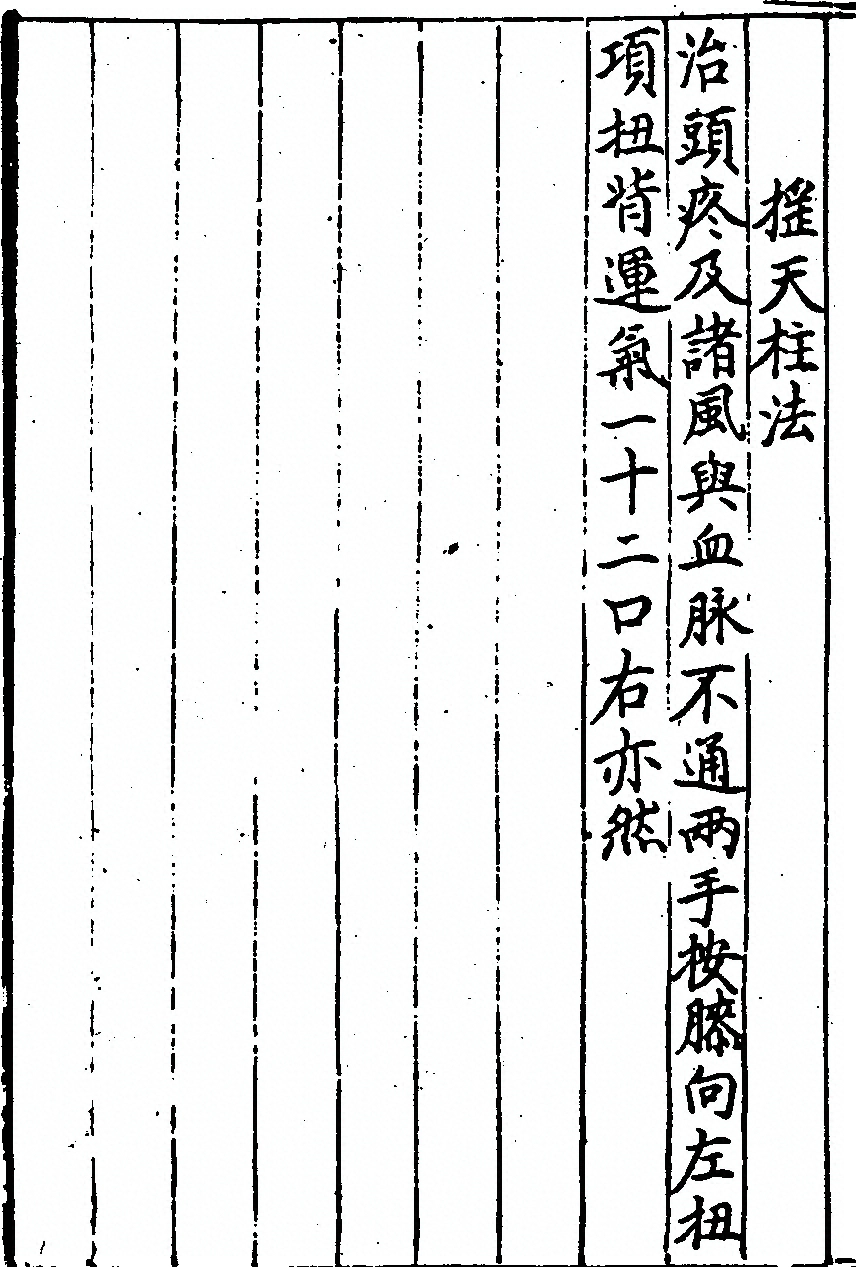 搖天柱法
治頭疼及諸風與血脉不通兩手按膝向左扭
項扭背運氣一十二口右亦然